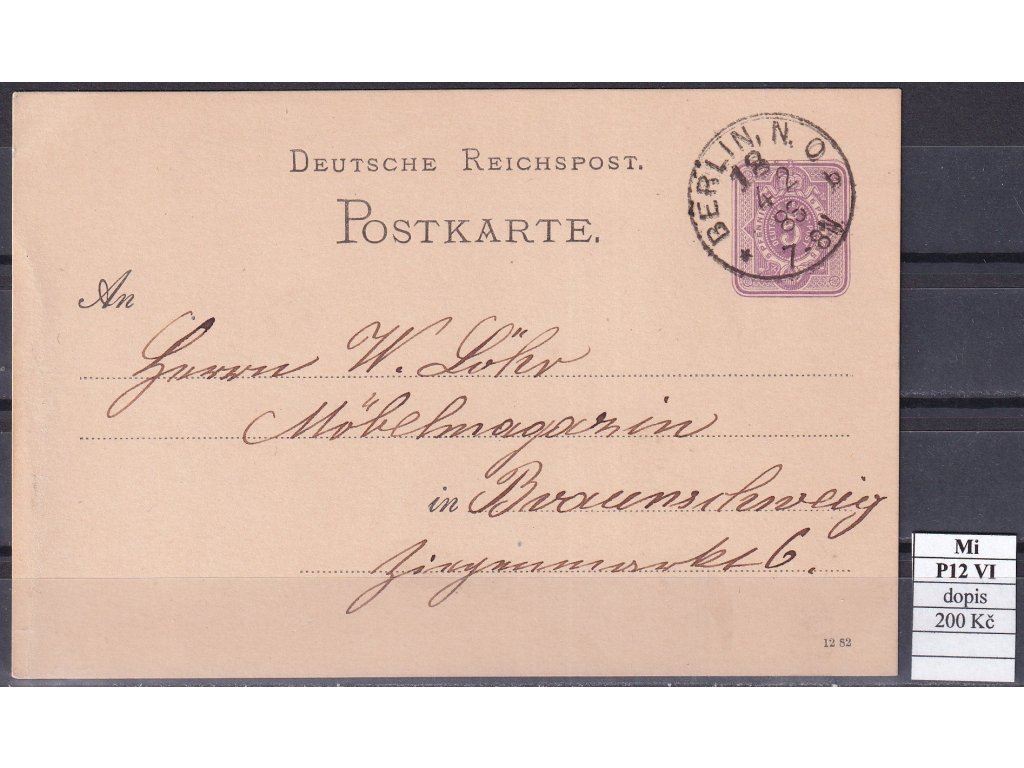 DEUTSCHE REICHSPOST.
POSTKARTE.
BERLIN, N. O
18
4
7-8N
5
PFENNIG
An
Herrn W. Löhr
Möbelmagazin
in Braunschweig
Ziegenmarkt 6.
12 82
Mi
P12 VI
dopis
200 Kč